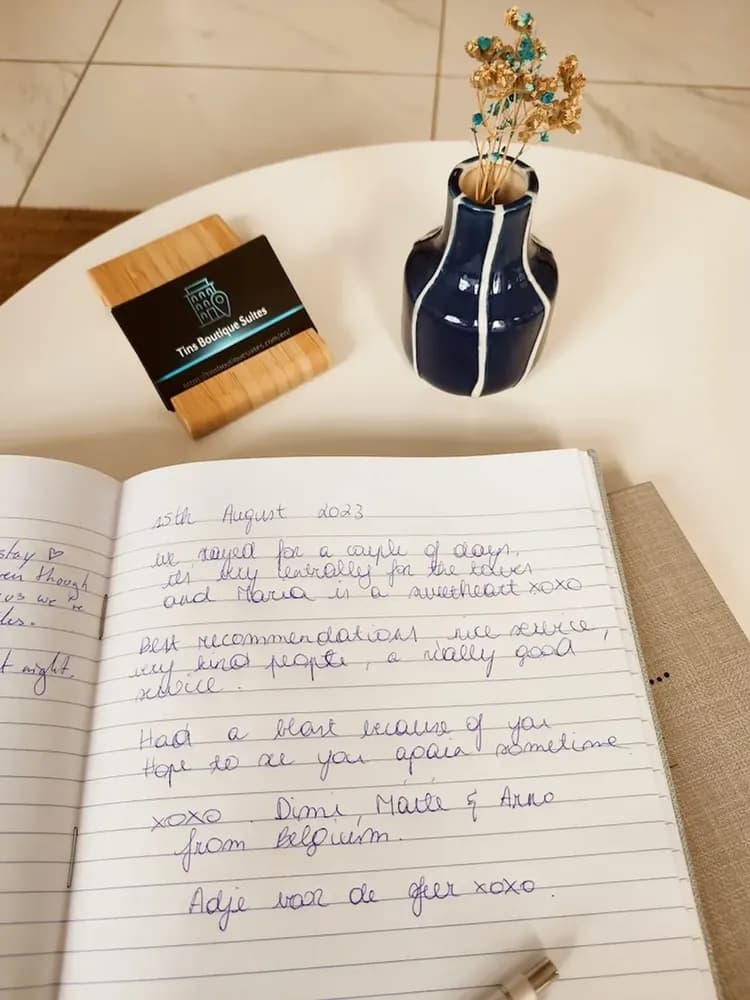 Tins Boutique Suites
https://tinsboutiquesuites.com/en/
stay ♡
even though
us we're
night.
15th August 2023
we stayed for a couple of days,
its very centrally for the
and Maria is a sweetheart xoxo
Best recommendations, nice service,
very kind people, a really good
service.
Had a blast because of you
Hope to see you again sometime
xoxo. Dimi, & Arno
from Belgium.
Adje voor de sfeer xoxo.